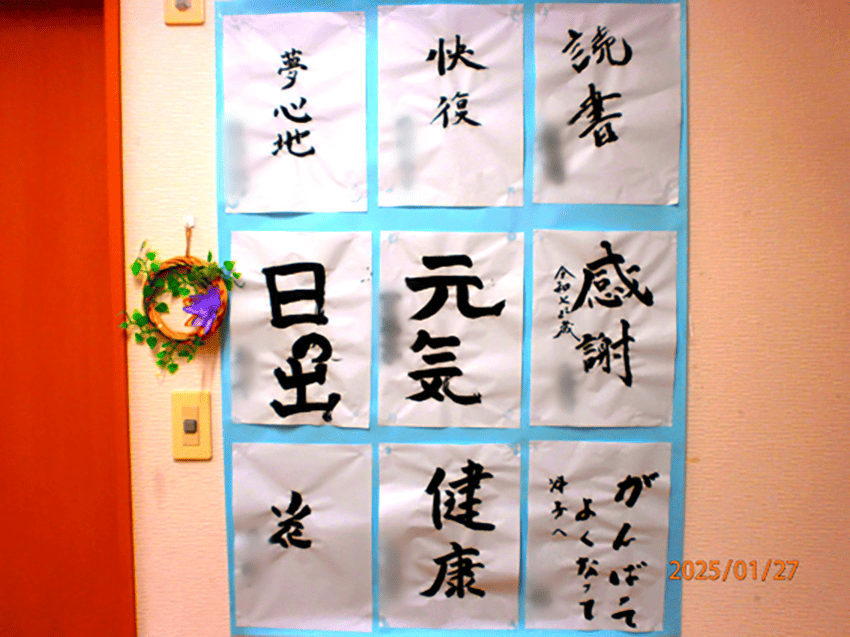 読書
快復
夢心地
感謝
令和七乙歳
元気
日の出
がんばって
よくなって
洋子へ
健康
花
2025/01/27